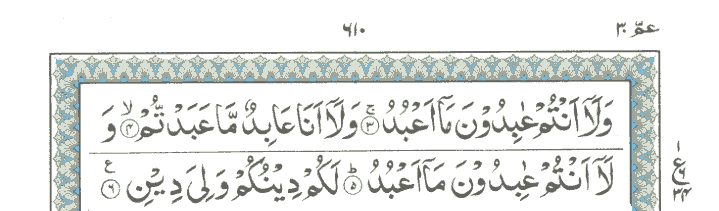 عمّ ٣٠
٦١٠
وَلَآ اَنْتُمْ عٰبِدُوْنَ مَآ اَعْبُدُ ۚ﴿٣﴾ وَلَآ اَنَا عَابِدٌ مَّا عَبَدْتُّمْ ۙ﴿٤﴾ وَ
لَآ اَنْتُمْ عٰبِدُوْنَ مَآ اَعْبُدُ ؕ﴿٥﴾ لَكُمْ دِيْنُكُمْ وَلِيَ دِيْنِ ﴿٦﴾ ع
١
ع
٦
٣٤